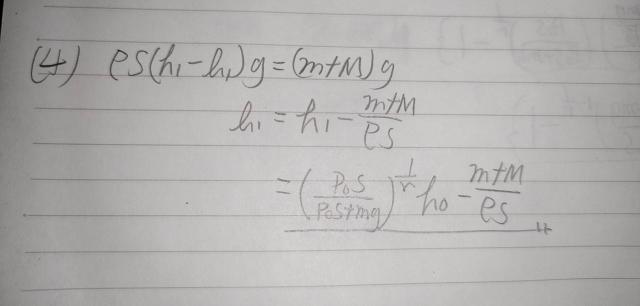 (4) ρS(h₁-h₁)g=(m+M)g
h₁ = h₁ - \frac{m+M}{ρS}
= (\frac{P₀S}{P₀S+mg})^{\frac{1}{r}} h₀ - \frac{m+M}{ρS}